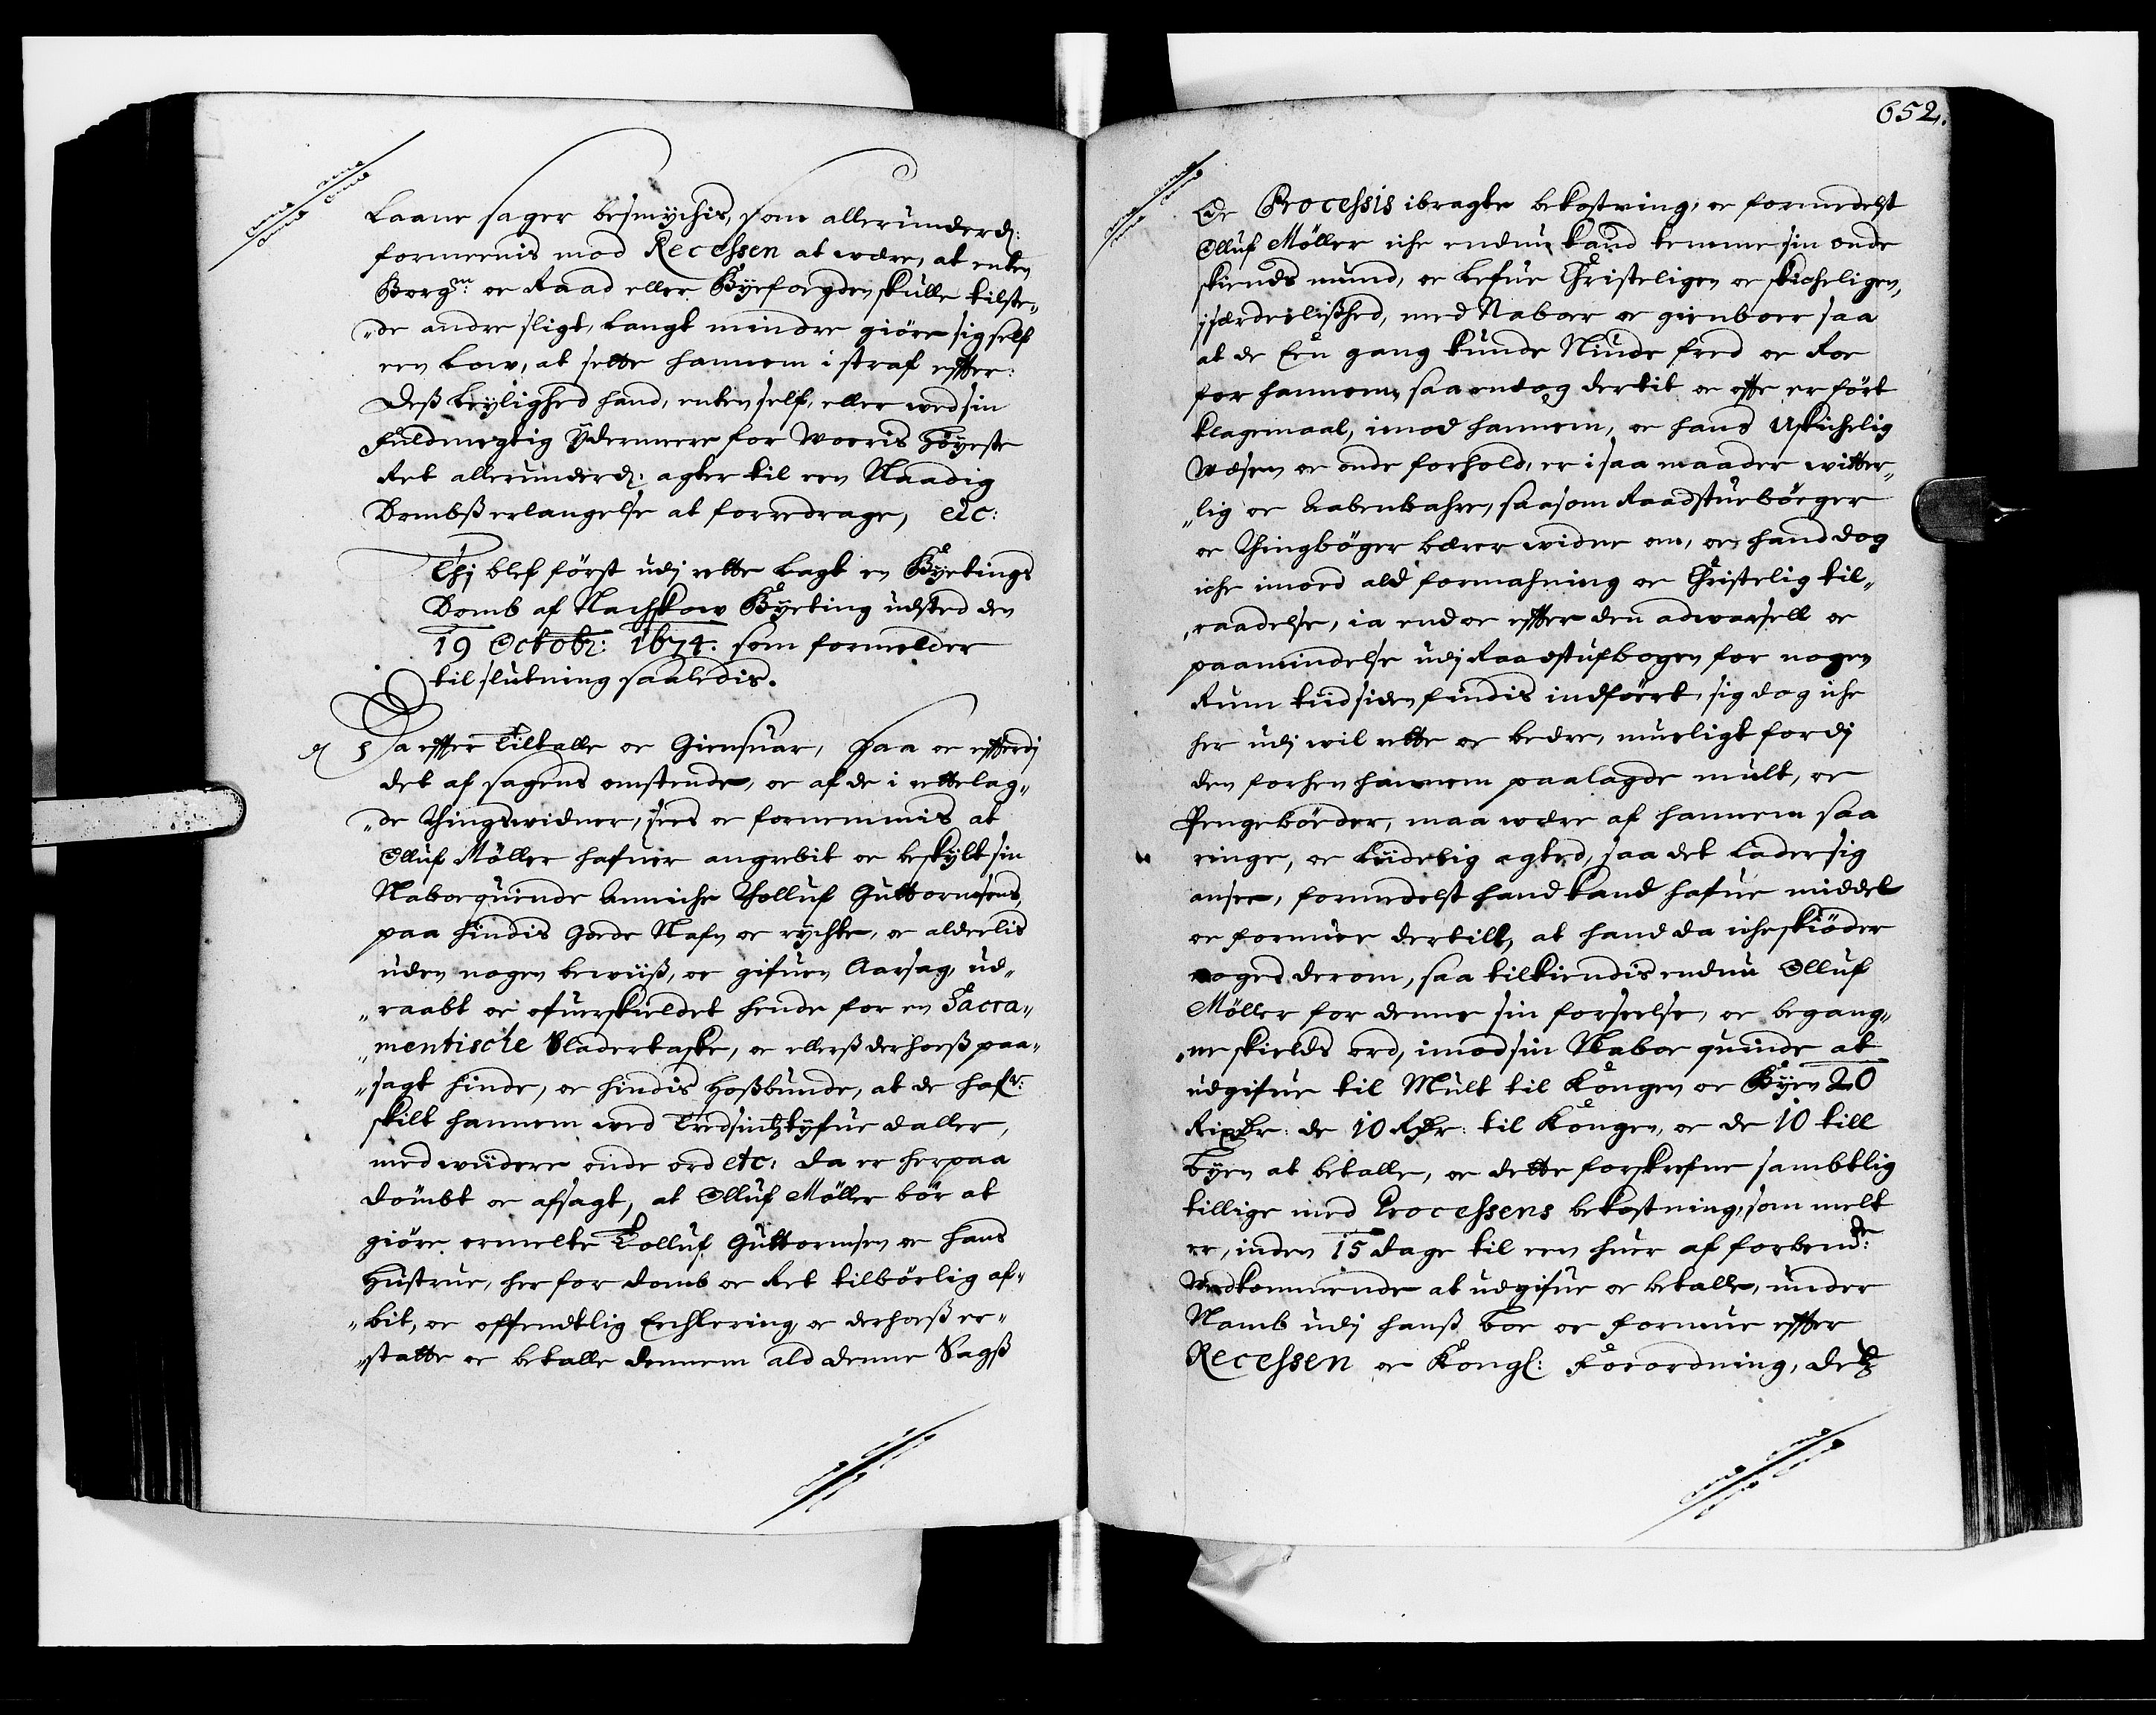 Laane sager besmychis, som allerunderd:
formeenis mod Recessen at være, at enten
Borgm: oc Raad eller Byefogden skulle tilste„
„de andre sligt, langt mindre giöre sig self
een Low, at sette hannem i straf effter:
Dess leylighed hand, enten self, eller wed sin
Fuldmegtig ÿdermeere for Woeris Höyeste
Ret allerunderd: agter til een Naadig
Dombss erlangelse at forredrage, etc:
Thj blef först udj rette lagt en Byetings
Domb af Nachskow Byeting udsted den
19 Octobr: 1674: som formelder
til slutning saaledis.
Da effter Tiltalle oc Giensuar, saa oc efftterdj
det af sagens omstende, oc af de i rettelag„
„de Thingswidner, sees oc fornemmis at
Olluf Möller hafuer angrebit oc beskylt sin
Naboequinde Anniche Tolluf Guttormsens,
paa hindis Goede Nafn oc rychte, oc alderlis
uden nogen bewiiss, oc gifuen Aarsag, ud„
„raabt oc ofuerskieldet hende for en Sacra„
„mentische Bladertaske, oc ellerss derhoess paa„
„sagt hinde, oc hindis Hossbunde, at de hafr:
skilt hannem wed Tredsindztyfue daller,
med wiidere onde ord etc: da er herpaa
dömbt oc afsagt, at Olluf Möller bör at
giöre ermelte Tolluf Guttormsen oc hans
Hustrue, her for domb oc Ret tilbörlig af„
„bit, oc offendtlig Erchlering, oc derhoess er„
„statte oc betalle dennem ald denne Sagss
652.
Oc Processis ibragte bekostning, oc formedelst
Olluf Möller iche endnu kand temme sin onde
skiends mund, oc lefue Christeligen oc skicheligen,
i særdeilisshed, med Naboer oc gienboer saa
at de Een gang kunde Niude fred oc Roe
for hannem, saa endog dertit oc offte er fört
klagemaal, imod hannem, oc hans Uskichelig
Wæsen oc onde forhold, er i saa maader witter„
„lig oc Aabenbahre, saasom Raadstuebøeger
oc Thingbøger bærer widne om, oc hand dog
iche imoed ald formahning oc Christelig til„
„raadelse, ia end oc effter den adwarsell oc
paamindelse udj Raadstufbogen for nogen
Rum tiid siden findis indföert, sig dog iche
her udj wil rette oc bedre, mueligt fordj
den forhen hannem paalagde mult, oc
Pengebøeder, maa være af hannem saa
ringe, oc liidelig agted, saa det lader sig
ansee, formedelst hand kand hafue middel
oc formue dertilt, at hand da iche skiöder
noged derom, saa tilkiendis endnu Olluf
Möller for denne sin forseelse, oc begang„
„ne skields ord, imod sin Naboe quinde at
udgifue til Mult til Kongen oc Byen 20
Rixdr: de 10 Rdr: til Kongen, oc de 10 till
Byen at betalle, oc dette forskrefne sambtlig
tillige med Processens bekostning, som melt
er, inden 15 dage til een huer af forbende:
Wedkommende at udgifue oc betalle, under
Namb udj hanss boe oc formue effter
Recessen oc Kongl: Forordning, detz